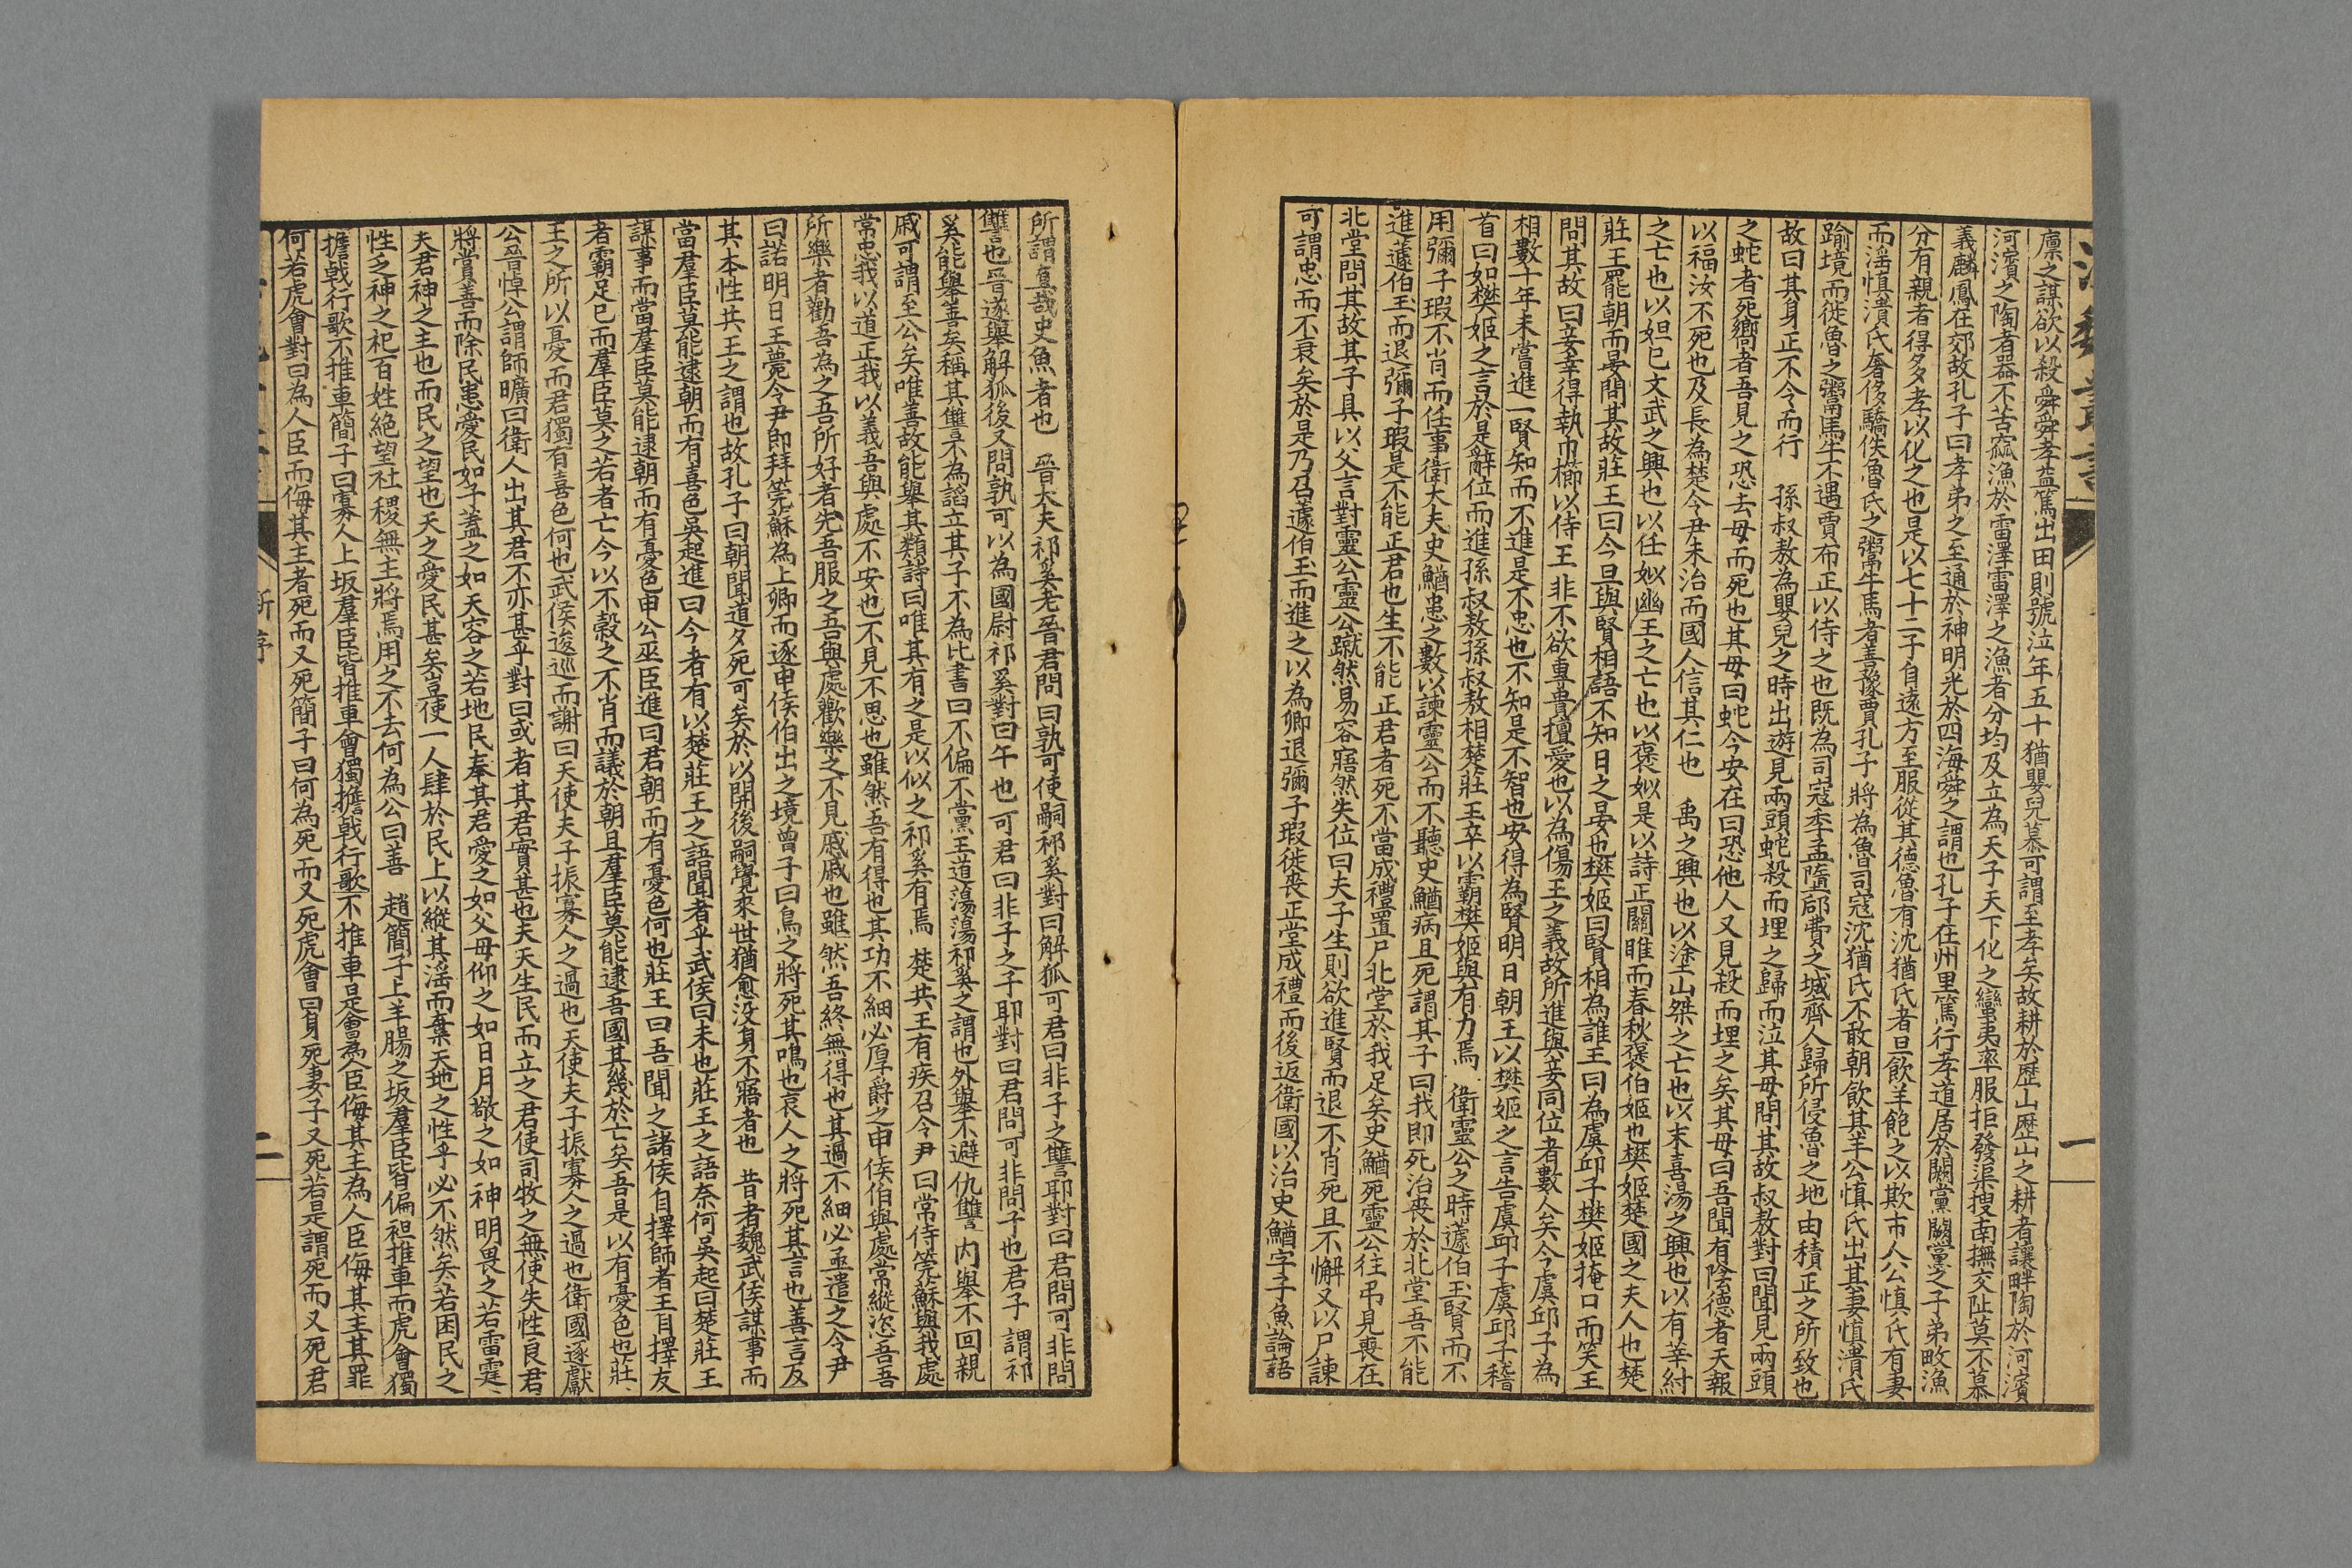 廩之謀欲以殺舜舜孝益篤出田則號泣年五十猶嬰兒慕可謂至孝矣故耕於歷山歷山之耕者讓畔陶於河濱
河濱之陶者器不苦窳漁於雷澤雷澤之漁者分均及立為天子天下化之蠻夷率服拒發渠搜南撫交阯莫不慕
義麟鳳在郊故孔子曰孝弟之至通於神明光於四海舜之謂也孔子在州里篤行孝道居於闕黨闕黨之子弟畋漁
分有親者得多孝以化之也是以七十二子自遠方至服從其德魯有沈猶氏者旦飲羊飽之以欺市人公慎氏有妻
而淫慎潰氏奢侈驕佚魯氏之鬻牛馬者善豫賈孔子將為魯司寇沈猶氏不敢朝飲其羊公慎氏出其妻慎潰氏
踰境而徙魯之鬻馬牛不遇賈布正以侍之也既為司寇季孟墮郈費之城齊人歸所侵魯之地由積正之所致也
故曰其身正不令而行　孫叔敖為嬰兒之時出遊見兩頭蛇殺而埋之歸而泣其母問其故叔敖對曰聞見兩頭
之蛇者死嚮者吾見之恐去母而死也其母曰蛇今安在曰恐他人又見殺而埋之矣其母曰吾聞有陰德者天報
以福汝不死也及長為楚令尹未治而國人信其仁也　禹之興也以塗山桀之亡也以末喜湯之興也以有莘紂
之亡也以妲己文武之興也以任姒幽王之亡也以褒姒是以詩正關雎而春秋褒伯姬也樊姬楚國之夫人也楚
莊王罷朝而晏問其故莊王曰今旦與賢相語不知日之晏也樊姬曰賢相為誰王曰為虞邱子樊姬掩口而笑王
問其故曰妾幸得執巾櫛以侍王非不欲專貴擅愛也以為傷王之義故所進與妾同位者數人矣今虞邱子為
相數十年未嘗進一賢知而不進是不忠也不知是不智也安得為賢明日朝王以樊姬之言告虞邱子虞邱子稽
首曰如樊姬之言於是辭位而進孫叔敖孫叔敖相楚莊王卒以霸樊姬與有力焉　衛靈公之時蘧伯玉賢而不
用彌子瑕不肖而任事衛大夫史鰌患之數以諫靈公而不聽史鰌病且死謂其子曰我即死治喪於北堂吾不能
進蘧伯玉而退彌子瑕是不能正君也生不能正君者死不當成禮置尸北堂於我足矣史鰌死靈公往弔見喪在
北堂問其故其子具以父言對靈公靈公蹴然易容寤然失位曰夫子生則欲進賢而退不肖死且不懈又以尸諫
可謂忠而不衰矣於是乃召蘧伯玉而進之以為卿退彌子瑕徙喪正堂成禮而後返衛國以治史鰌字子魚論語
所謂直哉史魚者也　晉大夫祁奚老晉君問曰孰可使嗣祁奚對曰解狐可君曰非子之讐耶對曰君問可非問
讐也晉遂舉解狐後又問孰可以為國尉祁奚對曰午也可君曰非子之子耶對曰君問可非問子也君子謂祁
奚能舉善矣稱其讐不為諂立其子不為比書曰不偏不黨王道蕩蕩祁奚之謂也外舉不避仇讐內舉不回親
戚可謂至公矣唯善故能舉其類詩曰唯其有之是以似之祁奚有焉　楚共王有疾召令尹曰常侍筦蘇與我處
常忠我以道正我以義吾與處不安也不見不思也雖然吾有得也其功不細必厚爵之申侯伯與處常縱恣吾吾
所樂者勸吾為之吾所好者先吾服之吾與處歡樂之不見戚戚也雖然吾終無得也其過不細必亟遣之令尹
曰諾明日王薨令尹即拜筦蘇為上卿而逐申侯伯出之境曾子曰鳥之將死其鳴也哀人之將死其言也善言反
其本性共王之謂也故孔子曰朝聞道夕死可矣於以開後嗣覺來世猶愈没身不寤者也　昔者魏武侯謀事而
當羣臣莫能逮朝而有喜色吳起進曰今者有以楚莊王之語聞者乎武侯曰未也莊王之語奈何吳起曰楚莊王
謀事而當羣臣莫能逮朝而有憂色申公巫臣進曰君朝而有憂色何也莊王曰吾聞之諸侯自擇師者王自擇友
者霸足己而羣臣莫之若者亡今以不穀之不肖而議於朝且羣臣莫能逮吾國其幾於亡矣吾是以有憂色也莊
王之所以憂而君獨有喜色何也武侯逡巡而謝曰天使夫子振寡人之過也天使夫子振寡人之過也衛國逐獻
公晉悼公謂師曠曰衛人出其君不亦甚乎對曰或者其君實甚也夫天生民而立之君使司牧之無使失性良君
將賞善而除民患愛民如子蓋之如天容之若地民奉其君愛之如父母仰之如日月敬之如神明畏之若雷霆
夫君神之主也而民之望也天之愛民甚矣豈使一人肆於民上以縱其淫而棄天地之性乎必不然矣若困民之
性乏神之祀百姓絕望社稷無主將焉用之不去何為公曰善　趙簡子上羊腸之坂羣臣皆偏袒推車而虎會獨
擔戟行歌不推車簡子曰寡人上坂羣臣皆推車會獨擔戟行歌不推車是會為人臣侮其主為人臣侮其主其罪
何若虎會對曰為人臣而侮其主者死而又死簡子曰何為死而又死虎會曰身死妻子又死若是謂死而又死君
新序
二
一